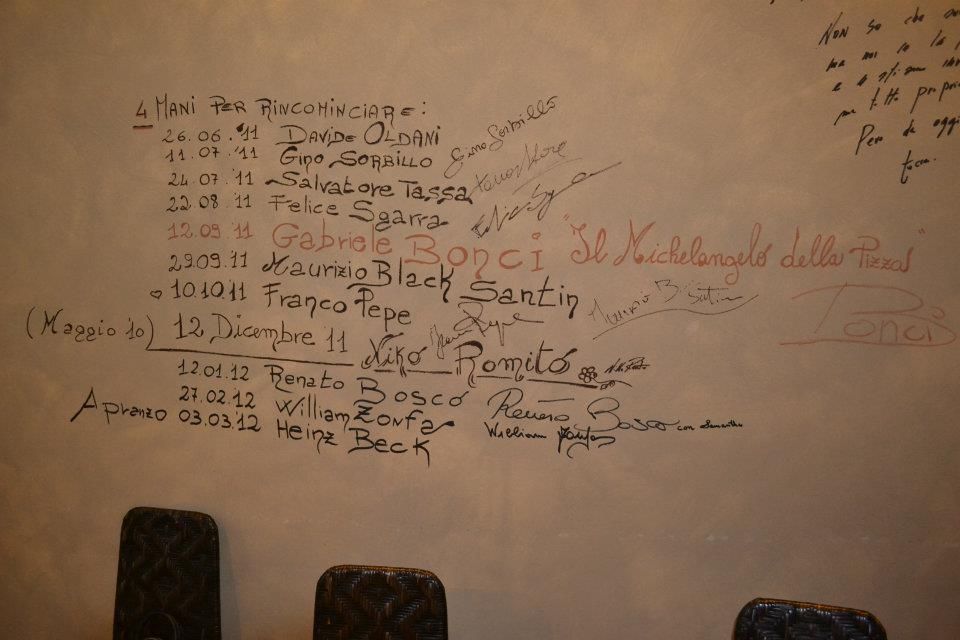 4 MANI PER RINCOMINCIARE:
26.06.'11 DAVIDE OLDANI
11.07.'11 GINO SORBILLO Gino Sorbillo
24.07.'11 Salvatore Tassa
22.08.'11 Felice Sgarra
12.09.11 Gabriele BONCI "Il Michelangelo della Pizza"
29.09.11 Maurizio Black Santin
10.10.11 Franco Pepe
Bonci
(Maggio '10) 12 Dicembre '11 Niko Romito
12.01.12 Renato Bosco Renato Bosco con Samantha
27.02.12 William Zonfa William Zonfa
A pranzo 03.03.12 Heinz Beck
Non so che
ma mi
e
per tutto
Per da oggi